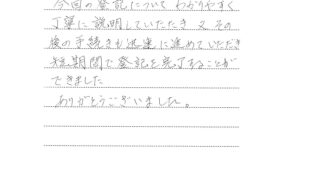 今回の登記について わかりやすく
丁寧に説明していただき 又 その
後の手続きも迅速に進めていただき
短期間で登記を完了することが
できました
ありがとうございました。